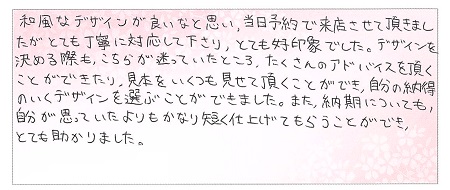 和風なデザインが良いなと思い,当日予約で来店させて頂きまし
たがとても丁寧に対応して下さり,とても好印象でした。デザインを
決める際も,こちらが迷っていたところ,たくさんのアドバイスを頂く
ことができたり,見本をいくつも見せて頂くことができ,自分の納得
のいくデザインを選ぶことができました。また,納期についても,
自分が思っていたよりもかなり短く仕上げてもらうことができ,
とても助かりました。